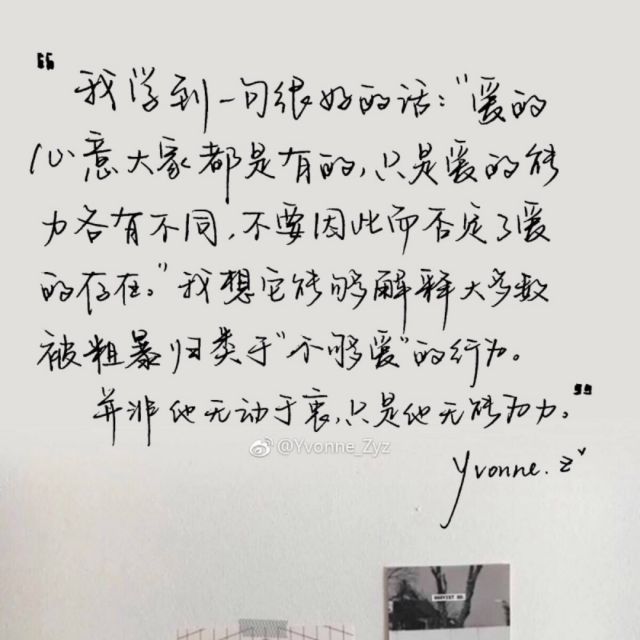 “我学到一句很好的话：“爱的
心意大家都是有的，只是爱的能
力各有不同，不要因此而否定了爱
的存在。”我想它能够解释大多数
被粗暴归类于“不够爱”的行为。
并非他无动于衷，只是他无能为力。”
@Yvonne_Zyz
Yvonne. Z